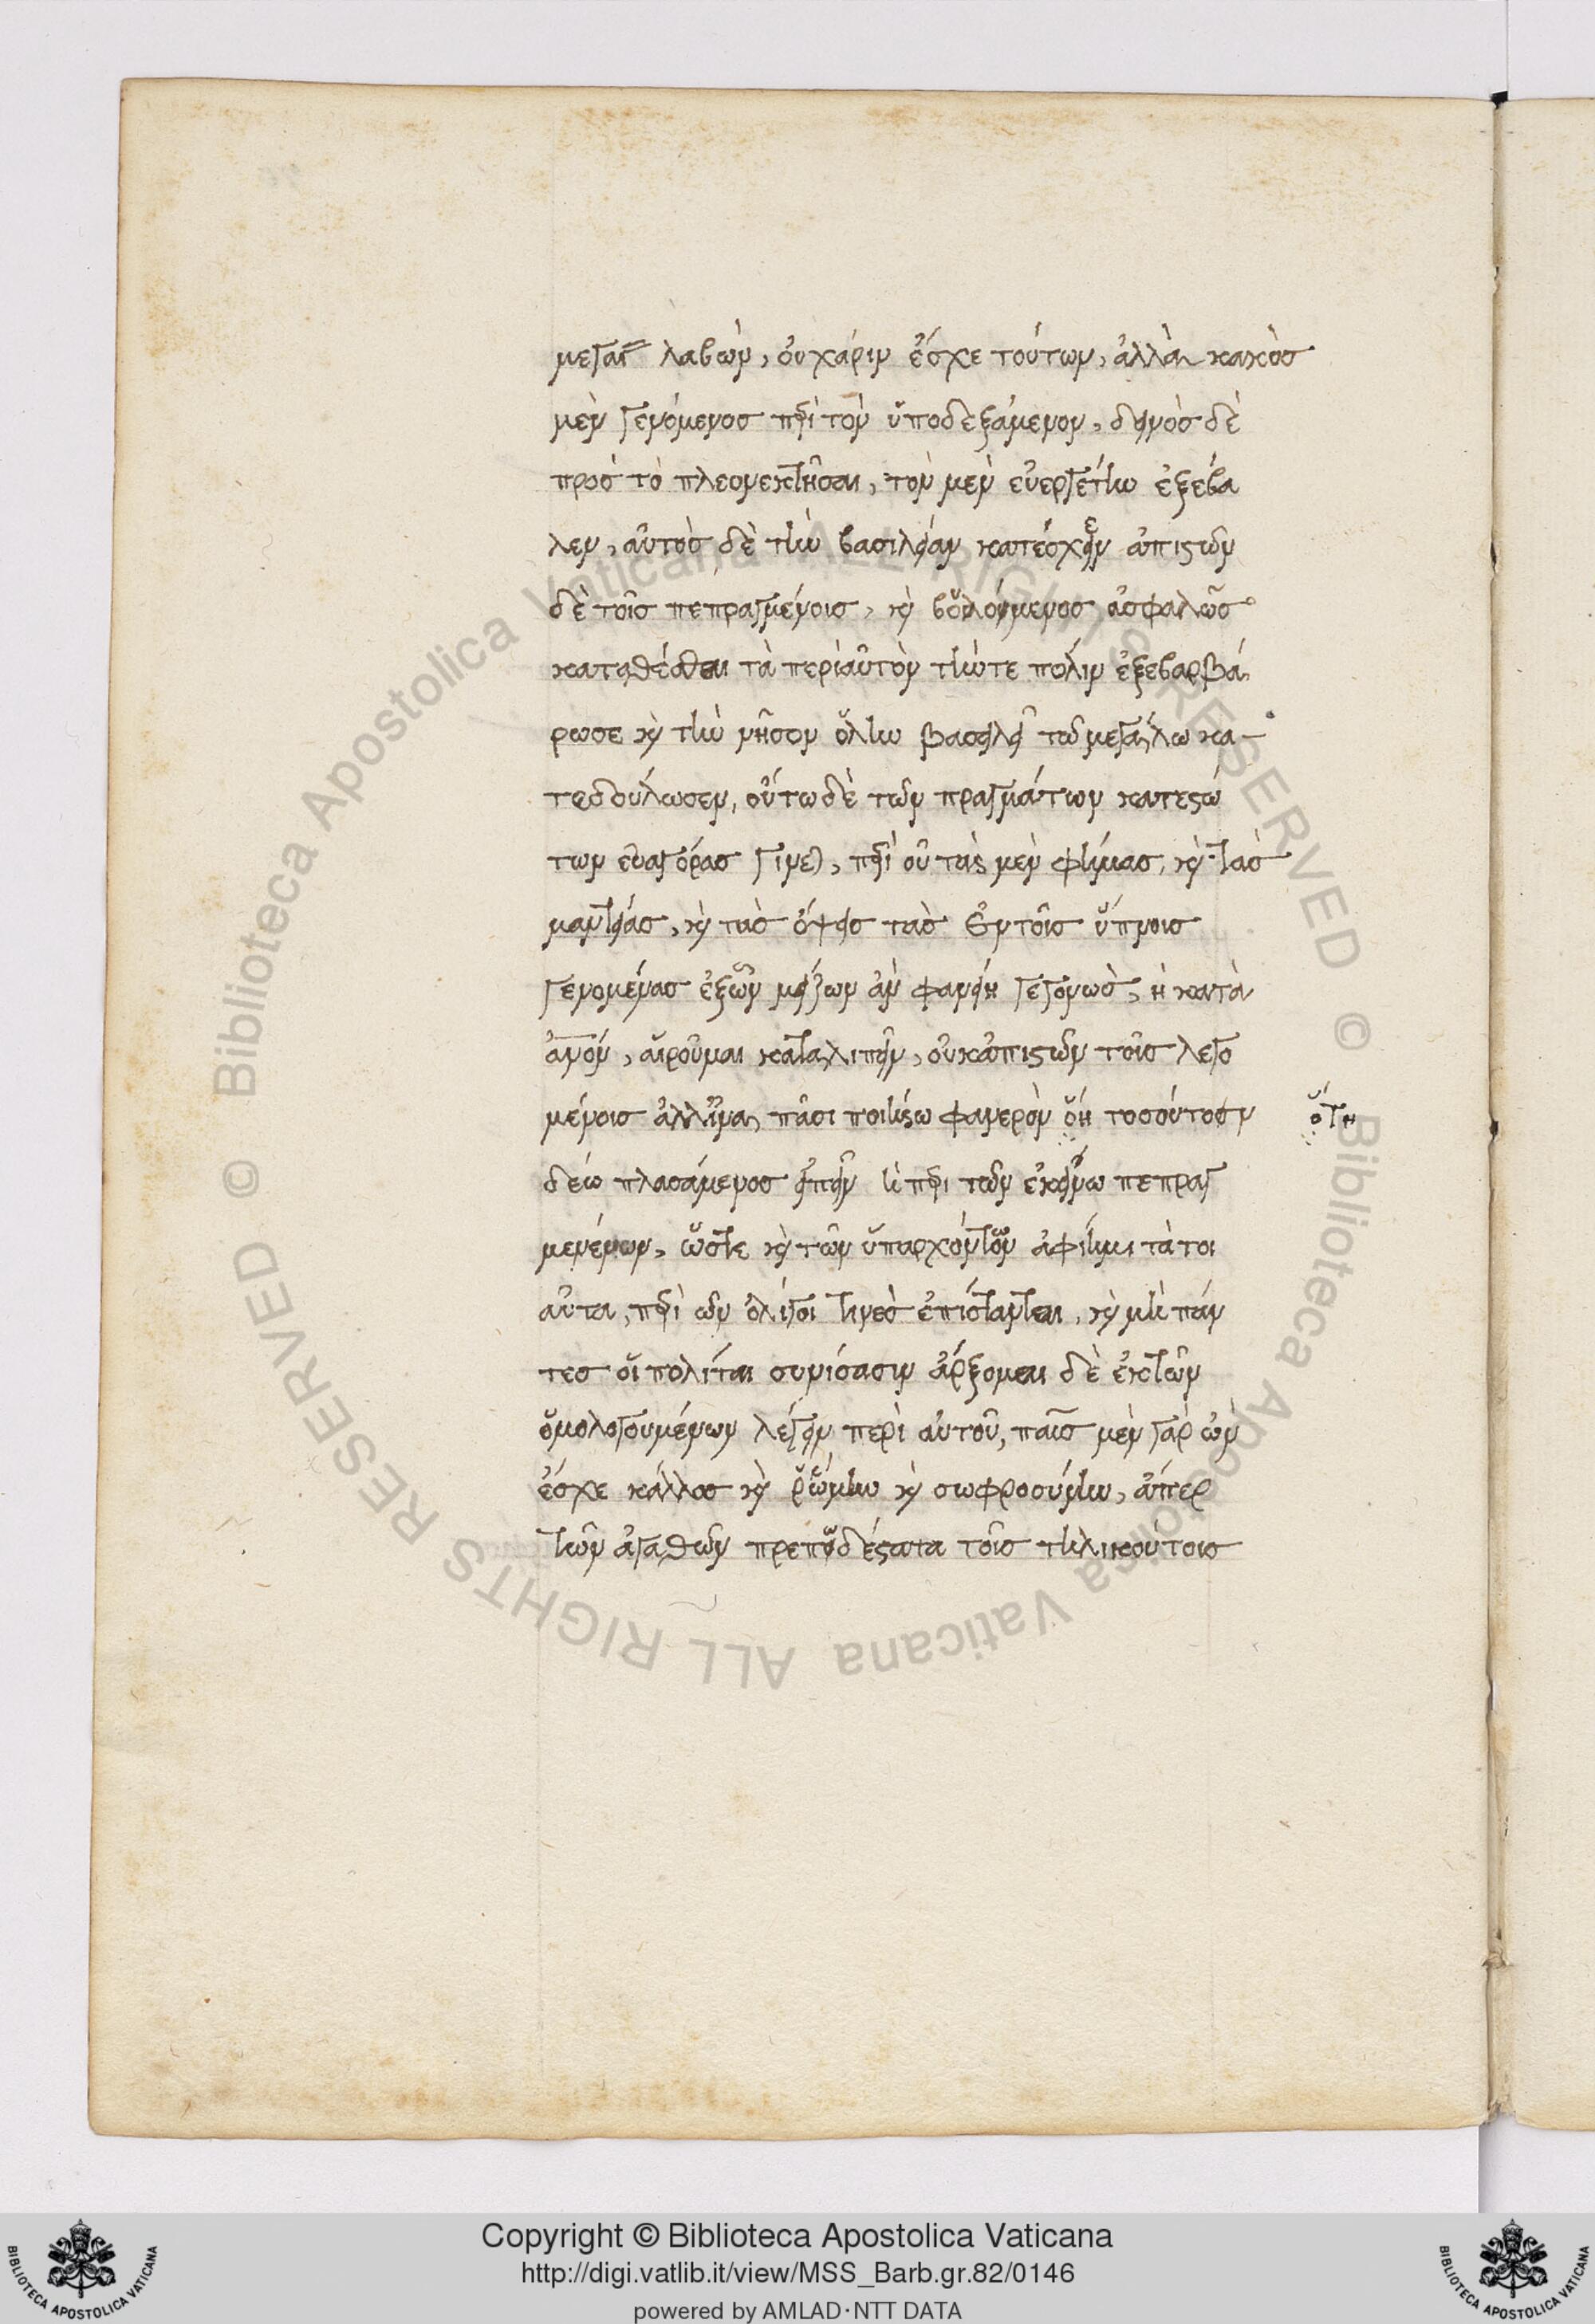 μεγάλας λαβὼν, οὐ χάριν ἔσχε τούτων, ἀλλὰ κακὸσ
μὲν γενόμενοσ περὶ τὸν ὑποδεξάμενον, δεινὸσ δὲ
πρὸσ τὸ πλεονεκτῆσαι, τὸν μὲν εὐεργέτην ἐξέβα
λεν, αὐτὸσ δὲ τὴν βασιλείαν κατέσχεν ἀπιστῶν
δὲ τοῖσ πεπραγμένοισ, καὶ βουλόμενοσ ἀσφαλῶσ
καταθέσθαι τὰ περὶ αὐτὸν τήν τε πόλιν ἐξεβαρβά
ρωσε καὶ τὴν νῆσον ὅλην βασιλεῖ τῶ μεγάλω κα-
τεδούλωσεν, οὕτω δὲ τῶν πραγμάτων κατεστώ
των εὐαγόρασ γίνεται, περὶ οὗ τὰς μὲν φήμασ, καὶ τὰσ
μαντείασ, καὶ τὰσ ὄψεισ τὰσ ἐν τοῖσ ὕπνοισ
γενομένασ ἐξ ὧν μείζων ἂν φανείη γεγονὼσ, ἢ κατὰ
ἄνον, αἱροῦμαι καταλιπεῖν, οὐκ ἀπιστῶν τοῖσ λεγο
μένοισ ἀλλ' ἵνα πᾶσι ποιήσω φανερὸν ὅτη τοσούτου
ὅτη
δέω πλασάμενοσ εἰπεῖν τὶ περι τῶν ἐκείνω πεπραγ
μενένων, ὥστε καὶ τῶν ὑπαρχόντων ἀφίημι τὰ τοι
αῦτα, περὶ ων ὀλίγοι τινεσ ἐπίστανται, καὶ μὴ πάν
τεσ οἱ πολίται συνίσασιν ἄρξομαι δὲ ἐκ τῶν
ὁμολογουμένων λέγειν περὶ αὐτοῦ, παῖσ μὲν γὰρ ὢν
ἔσχε κάλλοσ καὶ ῥώμην καὶ σωφροσύνην, ἅπερ
τῶν ἀγαθῶν πρεπωδέστατα τοῖσ τηλικούτοισ
Copyright © Biblioteca Apostolica Vaticana
http://digi.vatlib.it/view/MSS_Barb.gr.82/0146
powered by AMLAD·NTT DATA